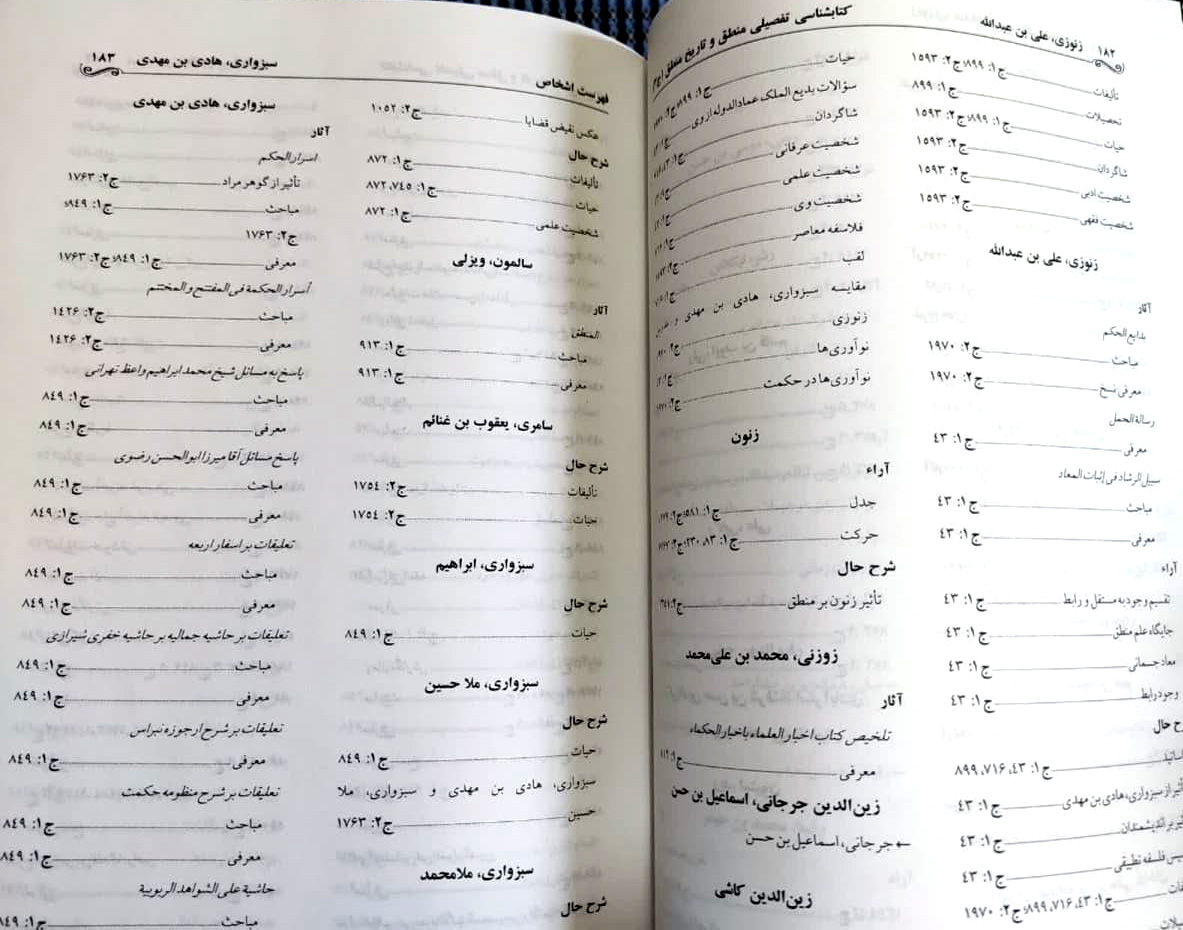 ۱۸۲
زنوزی، علی بن عبدالله
کتابشناسی تفصیلی منطق و تاریخ منطق (ج۳)
تألیفات ج۱: ۸۹۹؛ ج۲: ۱۵۹۳
تحصیلات ج۱: ۸۹۹
حیات ج۱: ۸۹۹؛ ج۲: ۱۵۹۳
شاگردان ج۲: ۱۵۹۳
شخصیت ادبی ج۲: ۱۵۹۳
شخصیت فقهی ج۲: ۱۵۹۳
زنوزی، علی بن عبدالله
آثار
بدایع الحکم
مباحث ج۲: ۱۹۷۰
معرفی نسخ ج۲: ۱۹۷۰
رسالة الحمل
معرفی ج۱: ۴۳
سبیل الرشاد فی إثبات المعاد
مباحث ج۱: ۴۳
معرفی ج۱: ۴۳
آراء
تقسیم وجود به مستقل و رابط ج۱: ۴۳
جایگاه علم منطق ج۱: ۴۳
معاد جسمانی ج۱: ۴۳
وجود رابط ج۱: ۴۳
ح حال
ج۱: ۴۳، ۷۱۶، ۸۹۹
از سبزواری، هادی بن مهدی ج۱: ۴۳
بر اندیشمندان ج۱: ۴۳
فلسفه تطبیقی ج۱: ۴۳
ج۱: ۴۳، ۷۱۶، ۸۹۹؛ ج۲: ۱۹۷۰
حیات
سؤالات بدیع الملک عمادالدوله از وی
شاگردان
شخصیت عرفانی
شخصیت علمی
شخصیت وی
فلاسفه معاصر
لقب
مقایسه سبزواری، هادی بن مهدی و
زنوزی
نوآوری‌ها
نوآوری‌ها در حکمت
زنون
آراء
جدل ج۱: ۵۸۱
حرکت ج۱: ۸۳، ۲۳۰
شرح حال
تأثیر زنون بر منطق
زوزنی، محمد بن علی‌محمد
آثار
تلخیص کتاب اخبار العلماء باخبار الحکماء
معرفی
زین‌الدین جرجانی، اسماعیل بن حسن
← جرجانی، اسماعیل بن حسن
زین‌الدین کاشی
فهرست اشخاص
سبزواری، هادی بن مهدی
۱۸۳
عکس نقیض قضایا ج۲: ۱۰۵۲
شرح حال
تألیفات ج۱: ۸۷۲
حیات ج۱: ۷۴۵، ۸۷۲
شخصیت علمی ج۱: ۸۷۲
سالمون، ویزلی
آثار
المنطق
مباحث ج۱: ۹۱۳
معرفی ج۱: ۹۱۳
سامری، یعقوب بن غنائم
شرح حال
تألیفات ج۲: ۱۷۵۴
حیات ج۲: ۱۷۵۴
سبزواری، ابراهیم
شرح حال
حیات ج۱: ۸۴۹
سبزواری، ملا حسین
شرح حال
حیات ج۱: ۸۴۹
سبزواری، هادی بن مهدی و سبزواری، ملا
حسین ج۲: ۱۷۶۳
سبزواری، ملامحمد
شرح حال
سبزواری، هادی بن مهدی
آثار
اسرار الحکم
تأثیر از گوهر مراد ج۲: ۱۷۶۳
مباحث ج۱: ۸۴۹؛
ج۲: ۱۷۶۳
معرفی ج۱: ۸۴۹؛ ج۲: ۱۷۶۳
أسرار الحکمة فی المفتتح و المختتم
مباحث ج۲: ۱۴۲۶
معرفی ج۲: ۱۴۲۶
پاسخ به مسائل شیخ محمد ابراهیم واعظ تهرانی
مباحث ج۱: ۸۴۹
معرفی ج۱: ۸۴۹
پاسخ مسائل آقا میرزا ابوالحسن رضوی
مباحث ج۱: ۸۴۹
معرفی ج۱: ۸۴۹
تعلیقات بر اسفار اربعه
مباحث ج۱: ۸۴۹
معرفی ج۱: ۸۴۹
تعلیقات بر حاشیه جمالیه بر حاشیه خفری شیرازی
مباحث ج۱: ۸۴۹
معرفی ج۱: ۸۴۹
تعلیقات بر شرح ارجوزه نبراس
معرفی ج۱: ۸۴۹
تعلیقات بر شرح منظومه حکمت
مباحث ج۱: ۸۴۹
معرفی ج۱: ۸۴۹
حاشیة علی الشواهد الربوبیة
مباحث ج۱: ۸۴۹